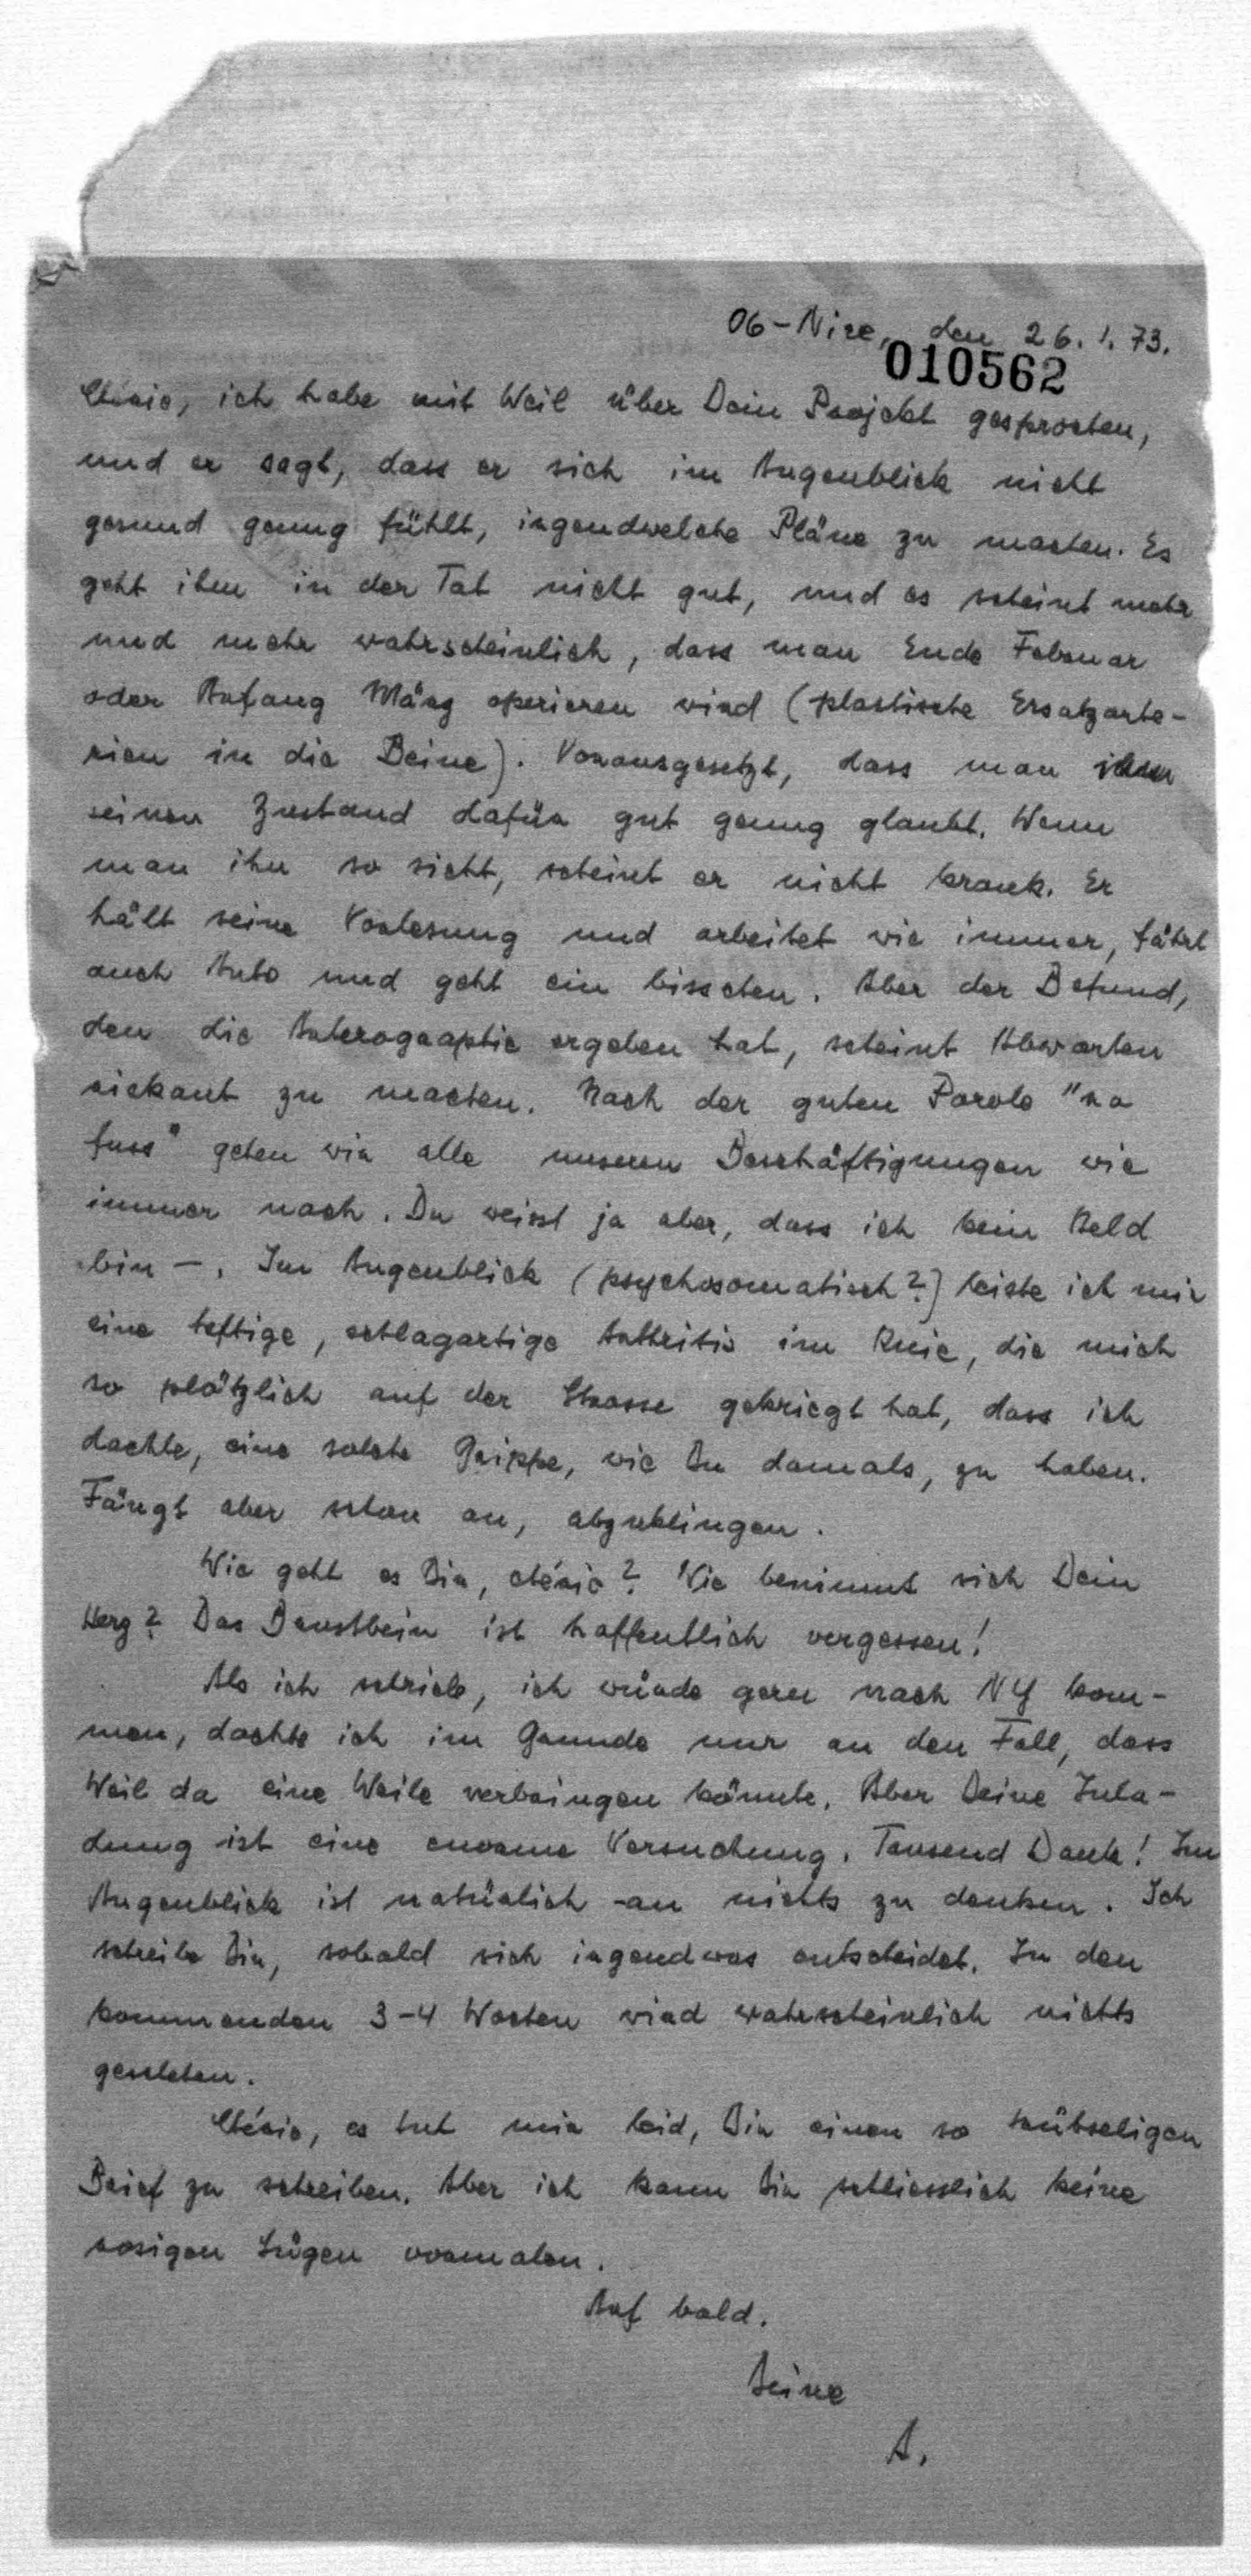 06-Nice, den 26.1.73.
010562
Chérie, ich habe mit Weil über Dein Projekt gesprochen,
und er sagt, dass er sich im Augenblick nicht
gesund genug fühlt, irgendwelche Pläne zu machen. Es
geht ihm in der Tat nicht gut, und es scheint mehr
und mehr wahrscheinlich, dass man Ende Februar
oder Anfang März operieren wird (plastische Ersatzarte-
rien in die Beine). Vorausgesetzt, dass man
seinen Zustand dafür gut genug glaubt. Wenn
man ihn so sieht, scheint er nicht krank. Er
hält seine Vorlesung und arbeitet wie immer, fährt
auch Auto und geht ein bisschen. Aber der Befund,
den die Arterographie ergeben hat, scheint Abwarten
riskant zu machen. Nach der guten Parole "no
fuss" gehen wir alle unseren Beschäftigungen wie
immer nach. Du weisst ja aber, dass ich kein Held
bin —. Im Augenblick (psychosomatisch?) leiste ich mir
eine heftige, schlagartige Arthritis im Knie, die mich
so plötzlich auf der Strasse gekriegt hat, dass ich
dachte, eine solche Grippe, wie Du damals, zu haben.
Fängt aber schon an, abzuklingen.
Wie geht es Dir, chérie? Wie benimmt sich Dein
Herz? Das Brustbein ist hoffentlich vergessen!
Als ich schrieb, ich würde gern nach NY kom-
men, dachte ich im Grunde nur an den Fall, dass
Weil da eine Weile verbringen könnte. Aber Deine Inla-
dung ist eine enorme Versuchung. Tausend Dank! Im
Augenblick ist natürlich an nichts zu denken. Ich
schreibe Dir, sobald sich irgendwas entscheidet. In den
kommenden 3-4 Wochen wird wahrscheinlich nichts
geschehen.
Chérie, es tut mir leid, Dir einen so trübseligen
Brief zu schreiben. Aber ich kann Dir schliesslich keine
rosigen Lügen vormalen.
Auf bald.
Deine
A.